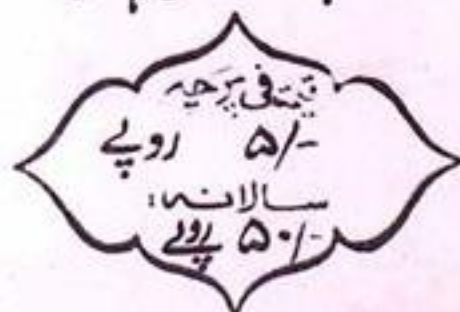 قیمت فی پرچہ
۵/- روپے
سالانہ:
۵۰/- روپے